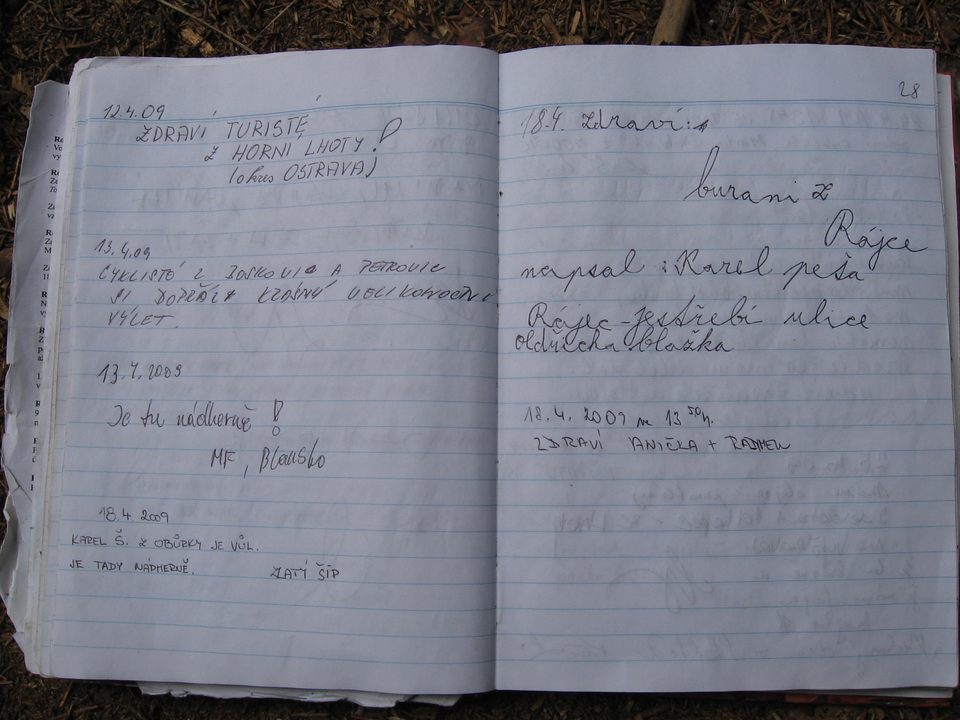 12.4.09
ZDRAVÍ TURISTÉ
Z HORNÍ LHOTY!
(okres OSTRAVA)
13.4.09
CYKLISTÉ Z BOSKOVIC A PETROVIC
SI DOPŘÁLI KRÁSNÝ VELIKONOČNÍ
VÝLET.
13.4.2009
Je tu nádherně!
MF, Blansko
18.4. 2009
KAREL Š. Z OBŮRKY JE VŮL.
JE TADY NÁDHERNĚ. ZLATÍ ŠÍP
28
18.4. zdraví:
burani z
Rájce
napsal: Karel peša
Rájec-jestřebí ulice
oldřicha blažka
18.4. 2009 ve 13 50h.
ZDRAVÍ ANIČKA + RADMEN